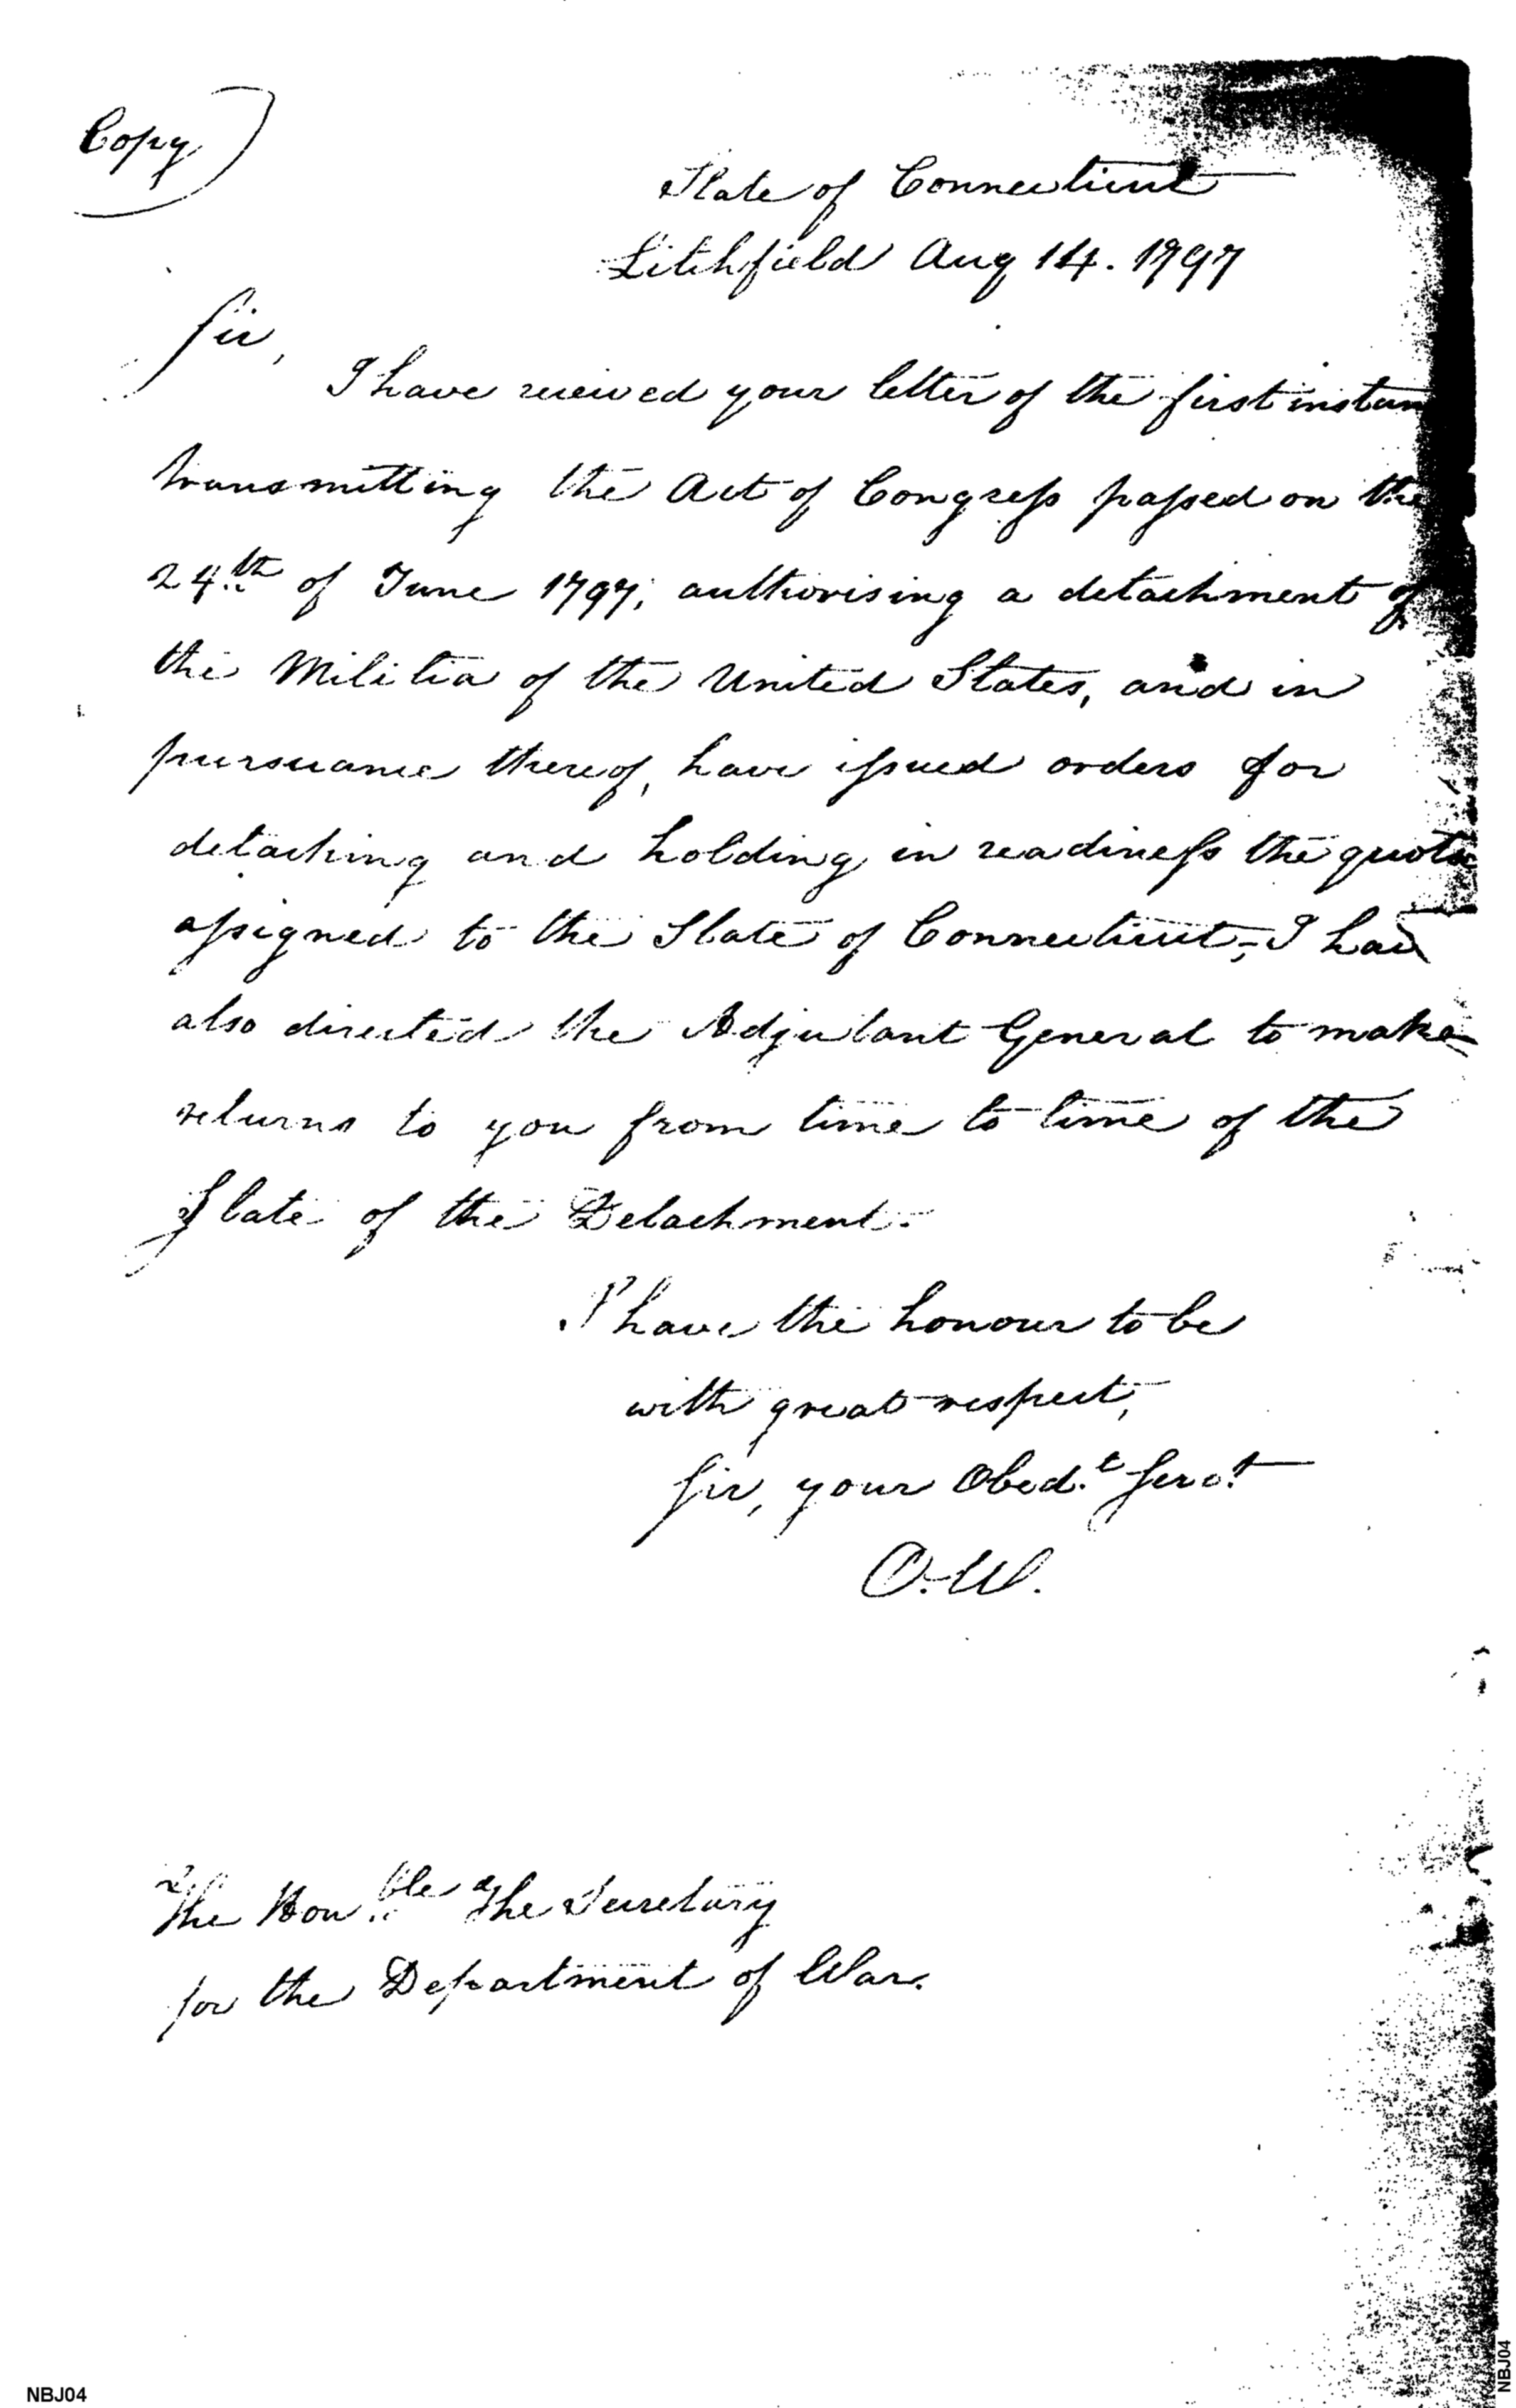 Copy)
State of Connecticut
Litchfield Aug 14. 1797
Sir,
I have received your letter of the first instan
transmitting the Act of Congress passed on the
24.th of June 1797, authorising a detachment of
the Militia of the United States, and in
pursuance thereof, have issued orders for
detaching and holding in readiness the quota
assigned to the State of Connecticut,- I have
also directed the Adjutant General to make
returns to you from time to time of the
State of the Detachment.
I have the honour to be
with great respect,
Sir, your Obed.t Serv.t
O.W.
The Hon.ble The Secretary
for the Department of War.
NBJ04
NBJ04